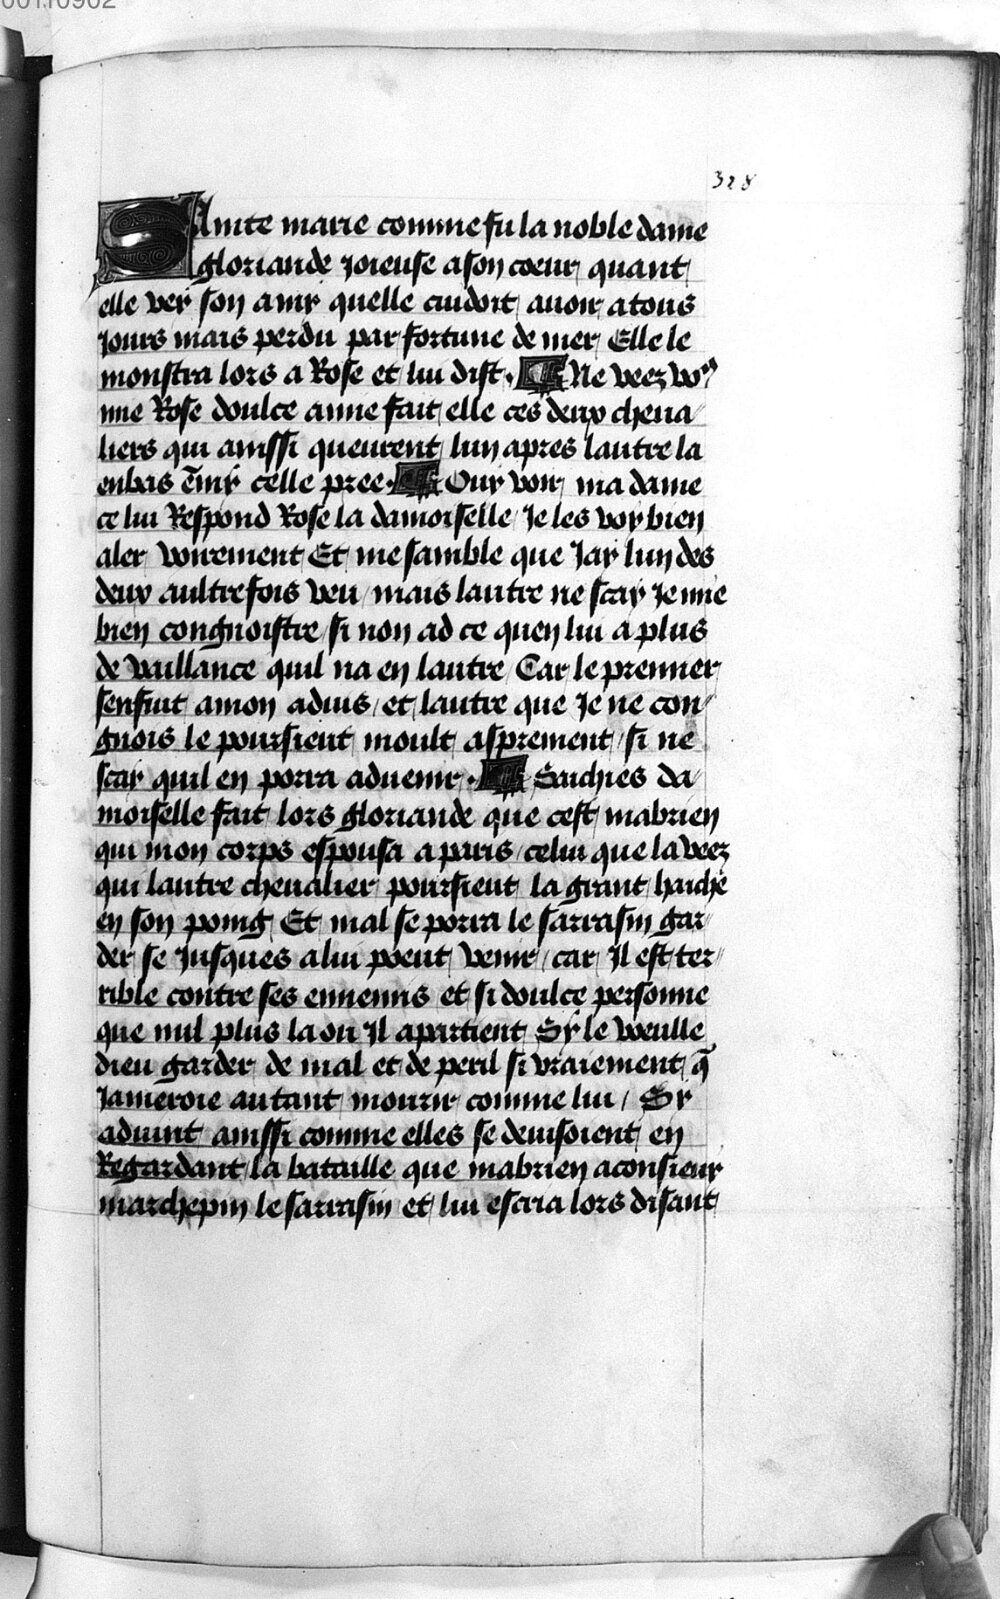 00110902
328
Sainte marie comme fu la noble dame
gloriande joieuse a son coeur quant
elle vey son amy quelle cuidoit auoir a tous
jours mais perdu par fortune de mer Elle le
monstra lors a Rose et lui dist. Ne veez voꝰ
mie Rose doulce amie fait elle ces deux cheua-
liers qui ainssi queurent lun apres lautre la
enbas emy celle pree. Ouy voir ma dame
ce lui Respond Rose la damoiselle / Je les voy bien
aler voirement Et me samble que Jay lun des
deux aultrefois veu / mais lautre ne scay Je mie
bien congnoistre / si non ad ce quen lui a plus
de vaillance quil na en lautre Car le premier
senfuit a mon aduis / et lautre que Je ne con-
gnois le poursieut moult asprement / si ne
scay quil en porra aduenir. Saichies da-
moiselle fait lors gloriande que cest mabrien
qui mon corps espousa a paris / celui que la veez
qui lautre cheualier poursieut la grant hache
en son poing Et mal se porra le sarrasin gar-
der se Jusques a lui poeut venir / car Il est ter-
rible contre ses ennemis et si doulce personne
que nul plus la ou Il apartient Sy le veulle
dieu garder de mal et de peril si vraiement q̃
Jameroie autant mourir comme lui / Sy
aduint ainssi comme elles se deuisoient en
Regardant la bataille que mabrien aconsieuy
marchepin le sarrasin et lui escria lors disant